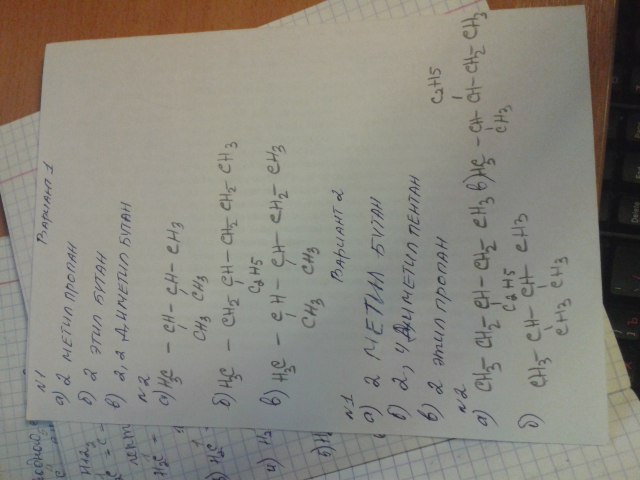 Вариант 1
N1
а) 2 МЕТИЛ ПРОПАН
б) 2 ЭТИЛ БУТАН
в) 2,2 ДИМЕТИЛ БУТАН
N2
а) H3C - CH - CH - CH3
CH3 CH3
б) H3C - CH2 - CH - CH2 - CH2 - CH3
C2H5
в) H3C - CH - CH - CH2 - CH3
CH3 CH3
Вариант 2
N1
а) 2 МЕТИЛ БУТАН
б) 2,4 ДИМЕТИЛ ПЕНТАН
в) 2 ЭТИЛ ПРОПАН
N2
а) CH3 - CH2 - CH - CH2 - CH3
C2H5
б) CH3 - CH - CH - CH3
CH3 CH3
C2H5
в) H3C - CH - CH - CH2 - CH3
CH3